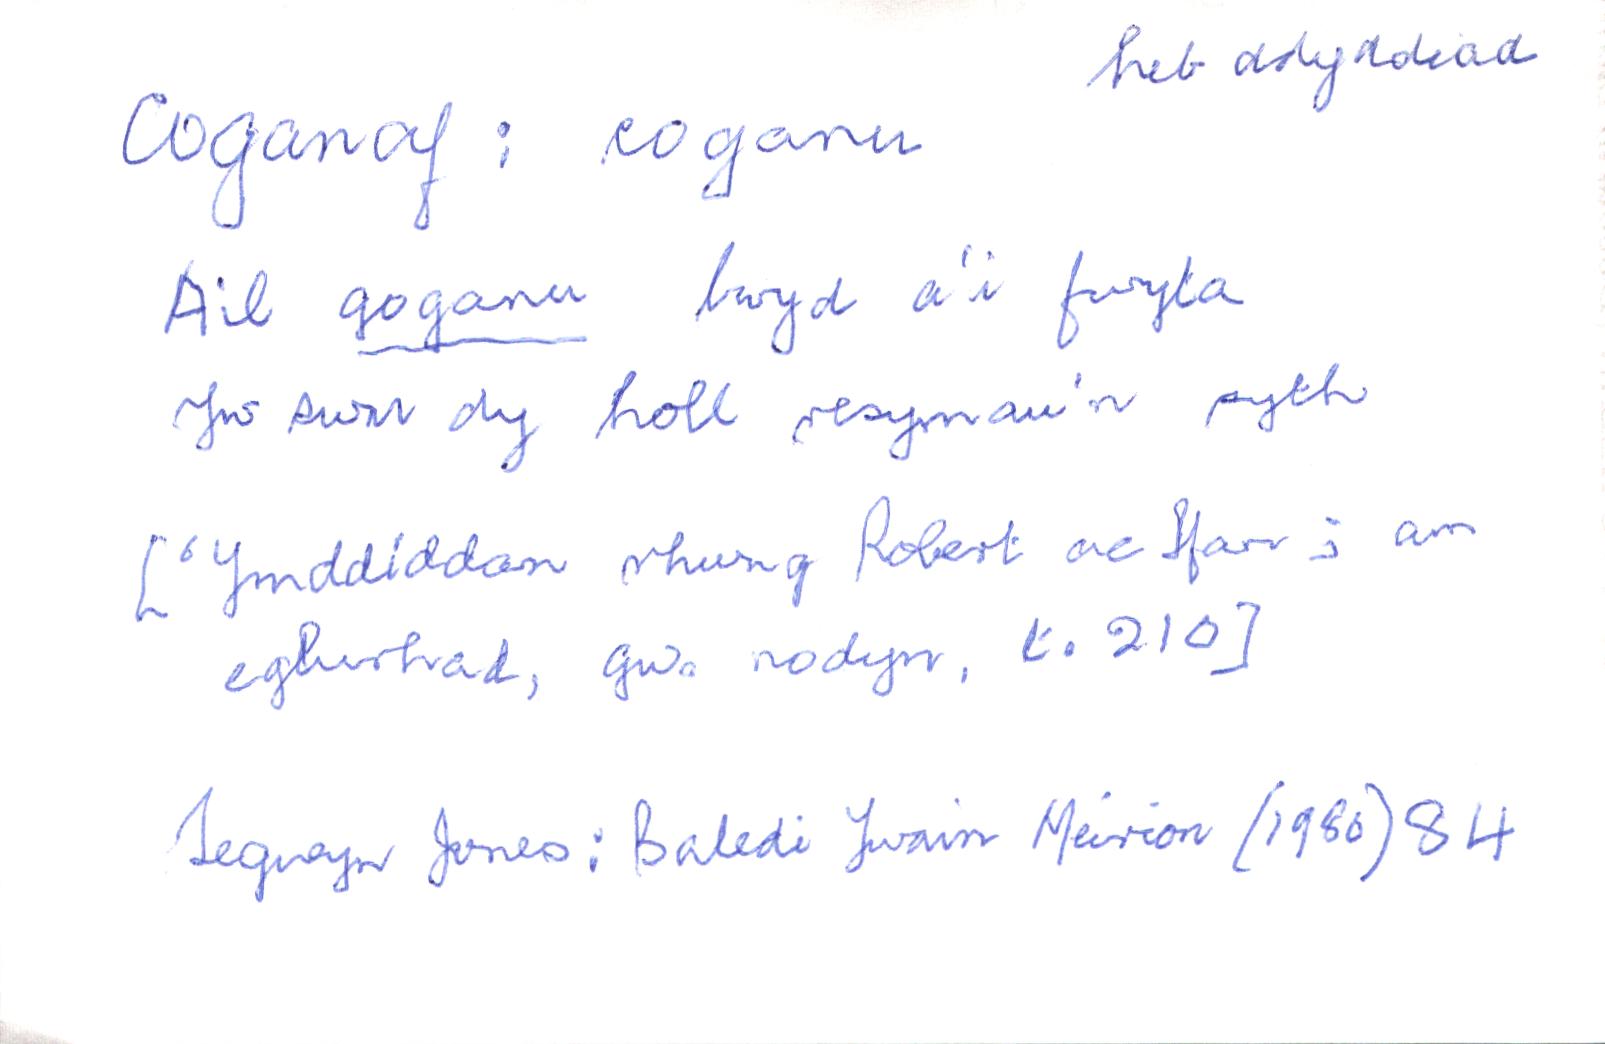 heb ddyddiad
Coganaf : coganu
Ail goganu bwyd a'i fwyta
Yw swn dy holl resymau'n syth
['Ymddiddan rhwng Robert ac Ifan ; am
eglurhad, gw. nodyn, t. 210]
Tegwyn Jones : Baledi Ywain Meirion (1980) 84